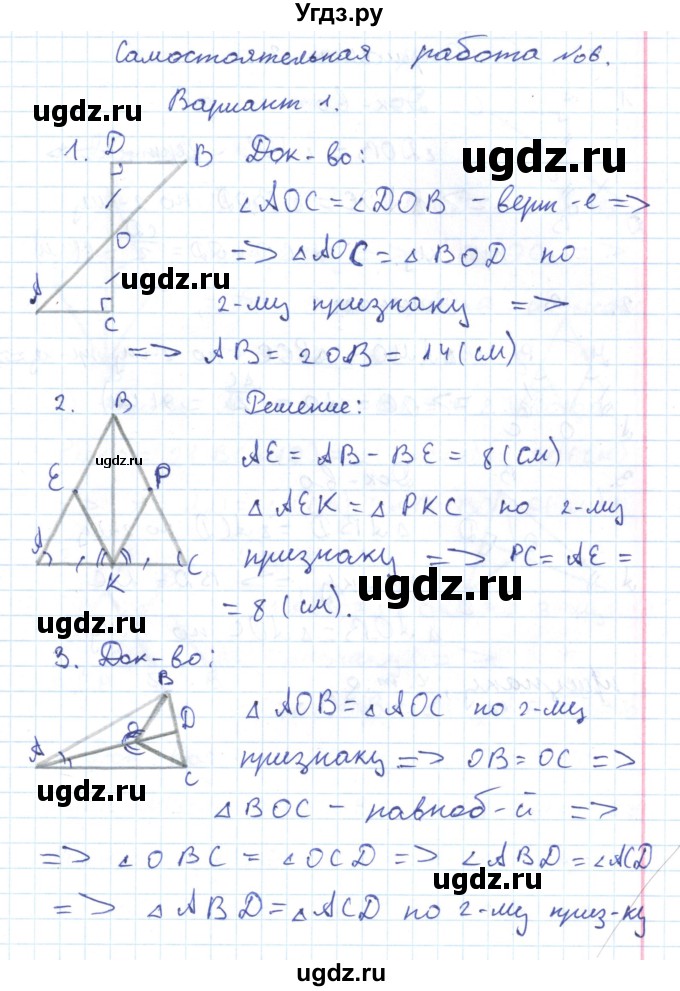 Угдз.ру
Самостоятельная работа №06.
Вариант 1.
ugdz.ru
1. D B Док-во:
ugdz.ru
∠AOC = ∠DOB - верт-е =>
O
=> △AOC = △BOD по
ugdz.ru
A 2-му признаку =>
C
=> AB = 2OB = 14 (см)
2. B Решение:
ugdz.ru
AE = AB - BE = 8 (см)
E P
△AEK = △PKC по 2-му
A K C признаку => PC = AE =
ugdz.ru
= 8 (см).
ugdz.ru
3. Док-во:
B
△AOB = △AOC по 2-му
D
A O C признаку => OB = OC =>
ugdz.ru
△BOC - равноб-й =>
=> ∠OBC = ∠OCD => ∠ABD = ∠ACD
ugdz.ru
=> △ABD = △ACD по 2-му приз-ку
ugdz.ru